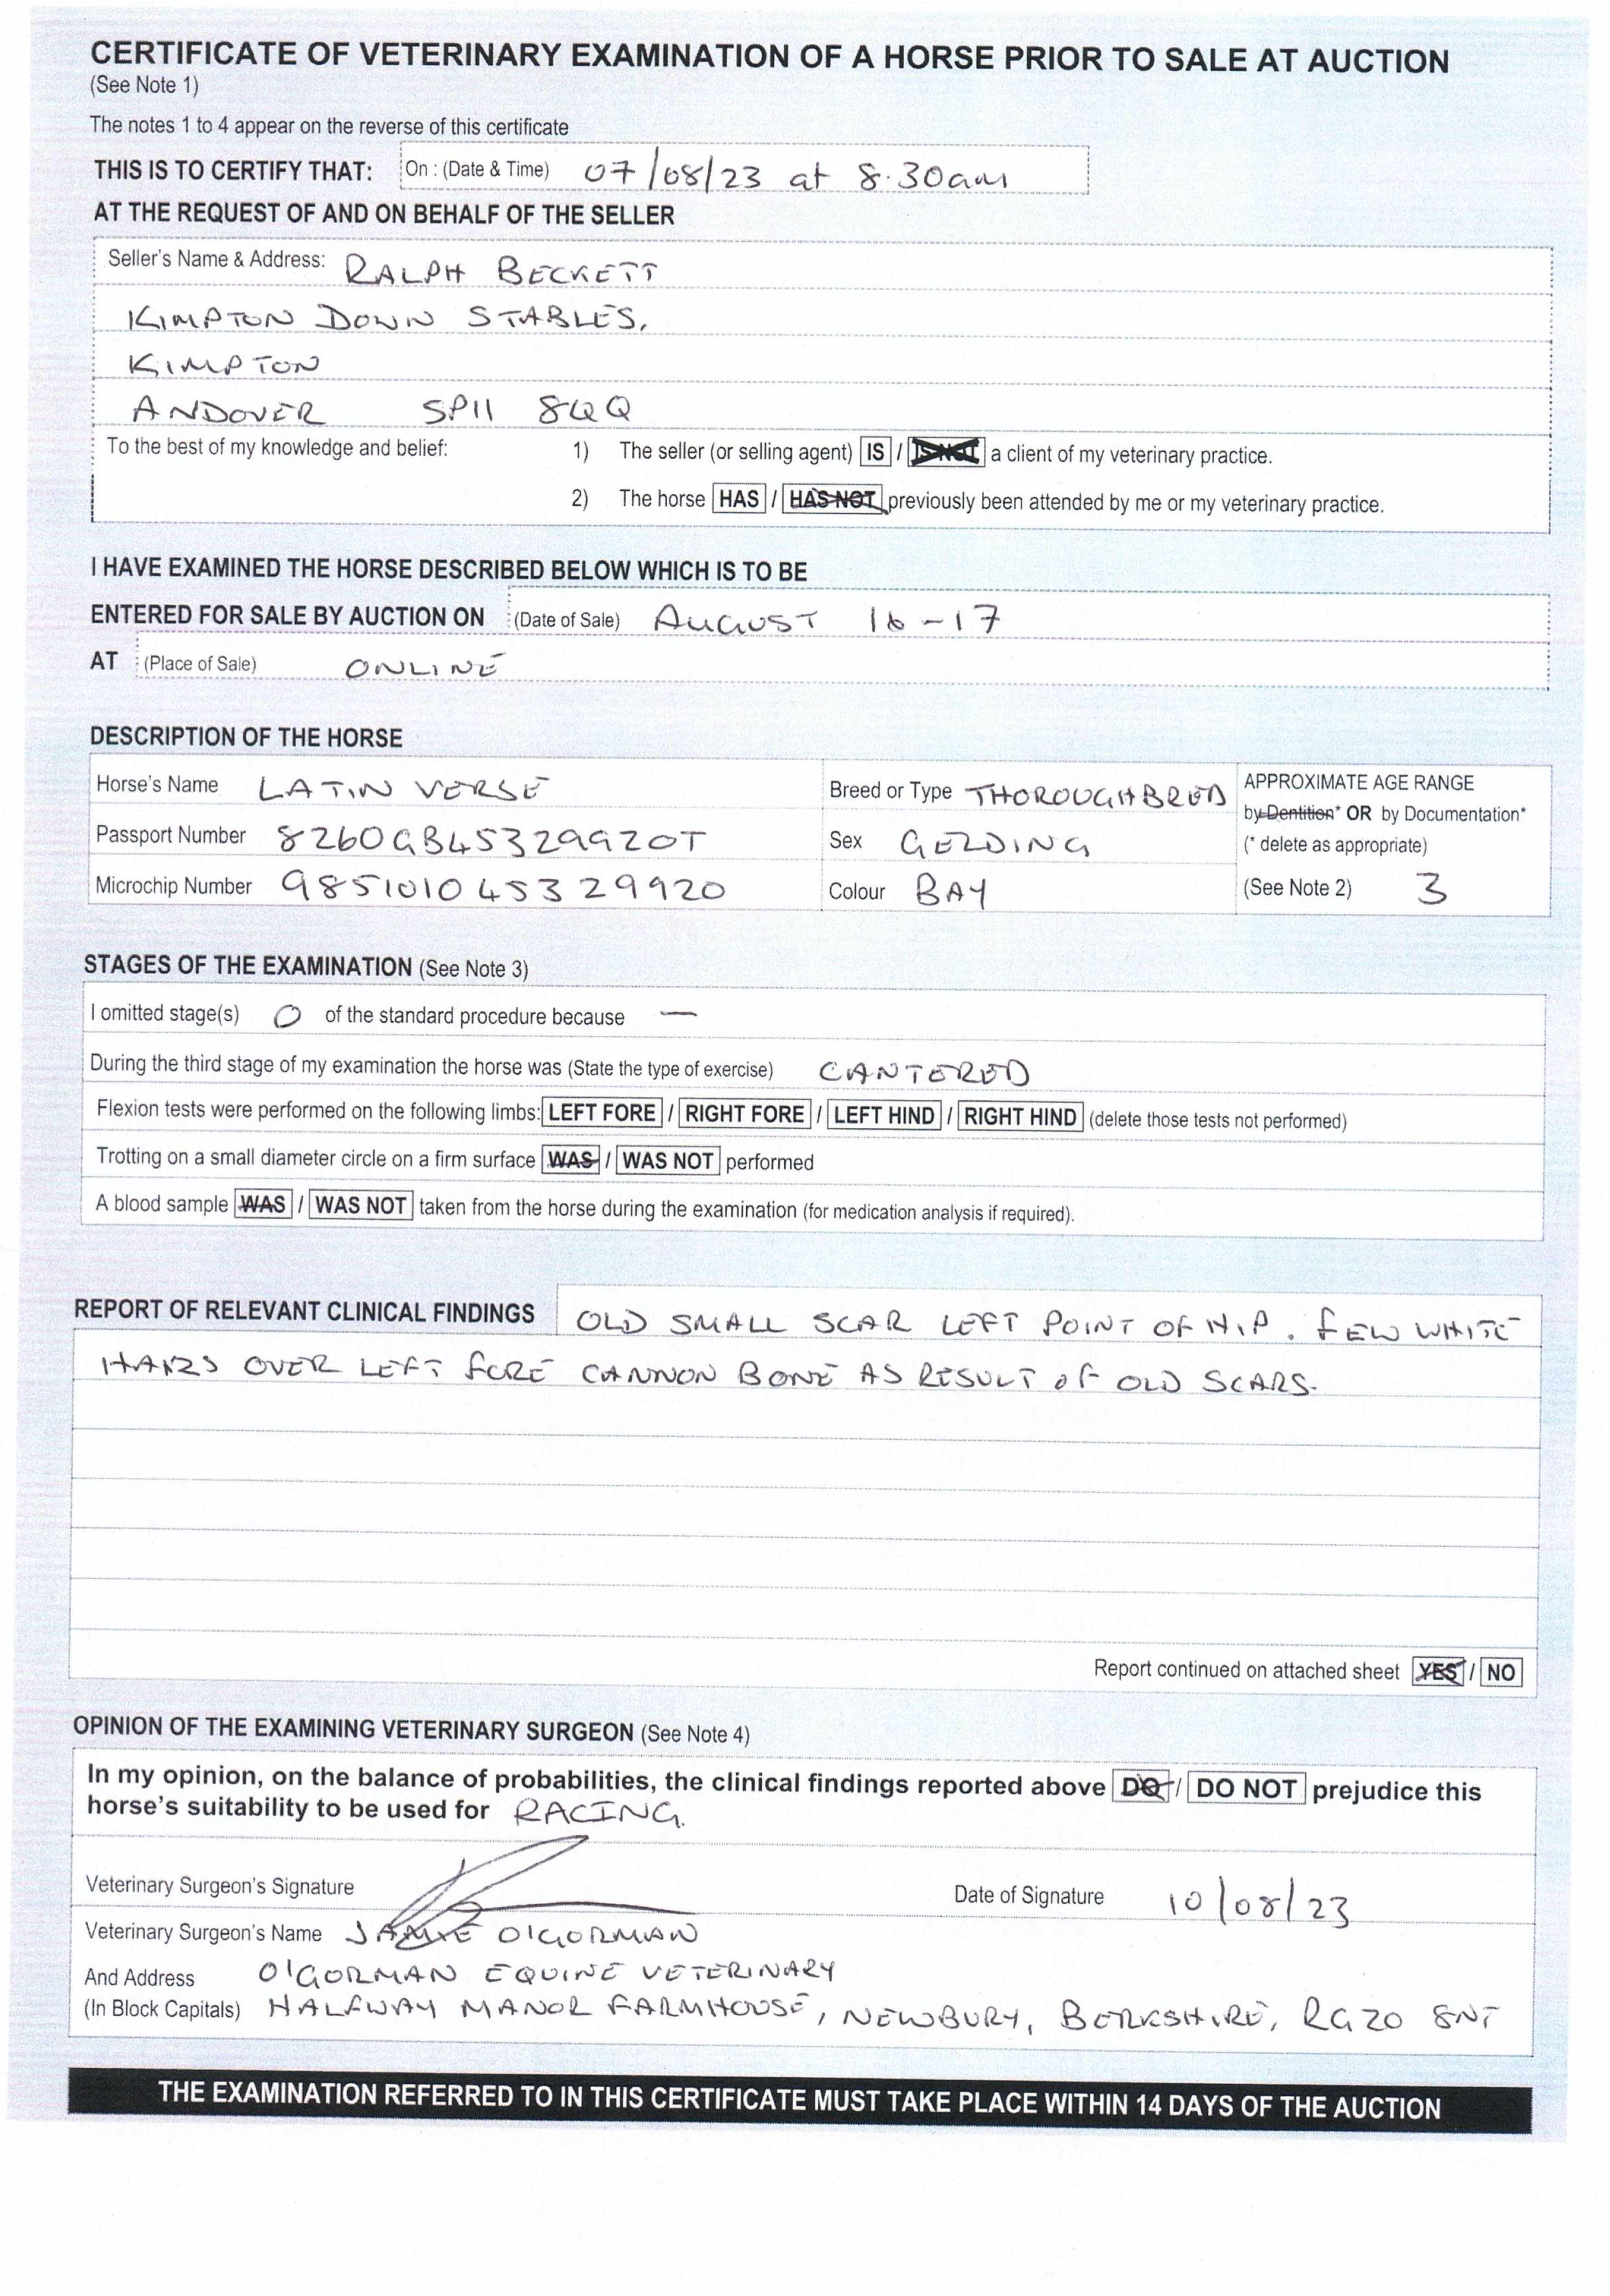 CERTIFICATE OF VETERINARY EXAMINATION OF A HORSE PRIOR TO SALE AT AUCTION
(See Note 1)
The notes 1 to 4 appear on the reverse of this certificate
THIS IS TO CERTIFY THAT: On : (Date & Time) 07/08/23 at 8.30am
AT THE REQUEST OF AND ON BEHALF OF THE SELLER
Seller's Name & Address: RALPH BECKETT
KIMPTON DOWN STABLES,
KIMPTON
ANDOVER SP11 8QQ
To the best of my knowledge and belief: 1) The seller (or selling agent) IS / IS NOT a client of my veterinary practice.
2) The horse HAS / HAS NOT previously been attended by me or my veterinary practice.
I HAVE EXAMINED THE HORSE DESCRIBED BELOW WHICH IS TO BE
ENTERED FOR SALE BY AUCTION ON (Date of Sale) AUGUST 16-17
AT (Place of Sale) ONLINE
DESCRIPTION OF THE HORSE
Horse's Name LATIN VERSE Breed or Type THOROUGHBRED APPROXIMATE AGE RANGE
by Dentition* OR by Documentation*
Passport Number 8260GB45329920T Sex GELDING (* delete as appropriate)
Microchip Number 985101045329920 Colour BAY (See Note 2) 3
STAGES OF THE EXAMINATION (See Note 3)
I omitted stage(s) 0 of the standard procedure because —
During the third stage of my examination the horse was (State the type of exercise) CANTERED
Flexion tests were performed on the following limbs: LEFT FORE / RIGHT FORE / LEFT HIND / RIGHT HIND (delete those tests not performed)
Trotting on a small diameter circle on a firm surface WAS / WAS NOT performed
A blood sample WAS / WAS NOT taken from the horse during the examination (for medication analysis if required).
REPORT OF RELEVANT CLINICAL FINDINGS OLD SMALL SCAR LEFT POINT OF HIP. FEW WHITE
HAIRS OVER LEFT FORE CANNON BONE AS RESULT OF OLD SCARS.
Report continued on attached sheet YES / NO
OPINION OF THE EXAMINING VETERINARY SURGEON (See Note 4)
In my opinion, on the balance of probabilities, the clinical findings reported above DO / DO NOT prejudice this
horse's suitability to be used for RACING.
Veterinary Surgeon's Signature Date of Signature 10/08/23
Veterinary Surgeon's Name JAMIE O'GORMAN
And Address O'GORMAN EQUINE VETERINARY
(In Block Capitals) HALFWAY MANOR FARMHOUSE, NEWBURY, BERKSHIRE, RG20 8NT
THE EXAMINATION REFERRED TO IN THIS CERTIFICATE MUST TAKE PLACE WITHIN 14 DAYS OF THE AUCTION